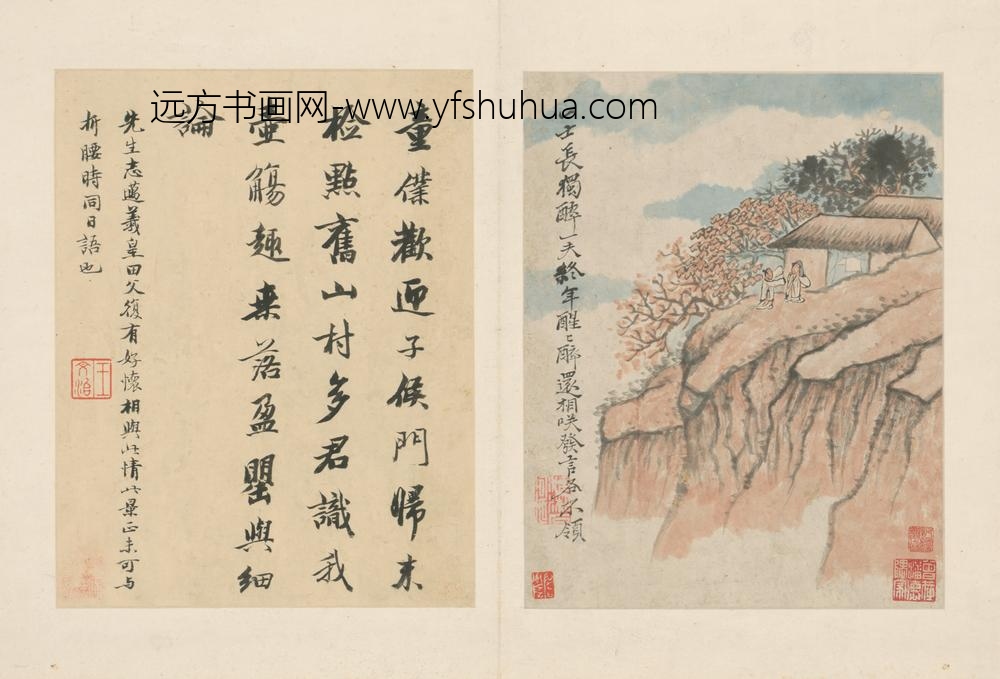 远方书画网-www.yfshuhua.com
士長獨醉一夫終年醒〻醉還相咲發言各不領
童僕歡迎子候門歸来
檢點舊山村多君識我
壺觴趣来落盈罌與細
論
先生志邈羲皇田父復有好懷相與此情此景正未可与
折腰時同日語也
王文治